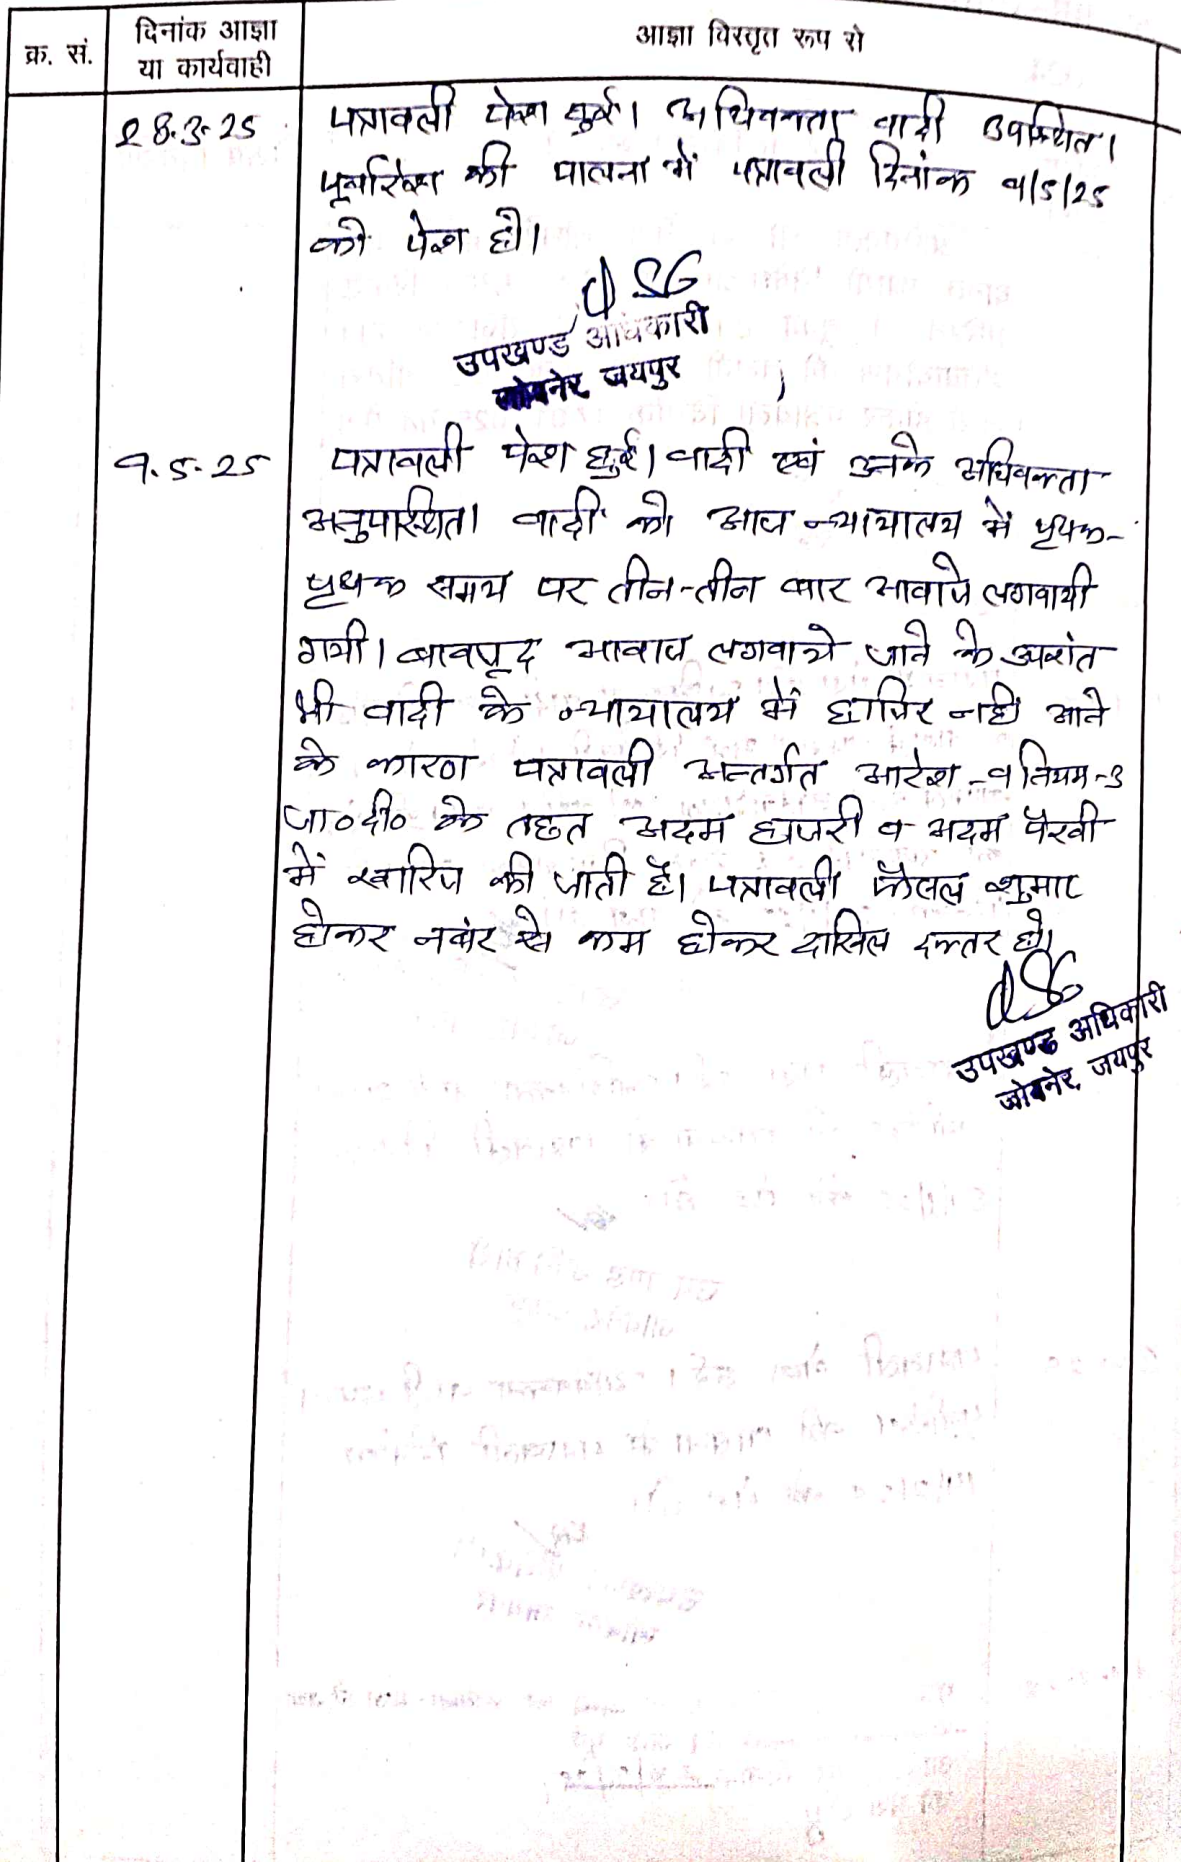 क्र. सं.
दिनांक आज्ञा
या कार्यवाही
आज्ञा विस्तृत रूप से
28.3.25
पत्रावली पेश हुई। अधिवक्ता वादी उपस्थित।
पूर्वादेश की पालना में पत्रावली दिनांक 9/5/25
को पेश हो।
उपखण्ड अधिकारी
जोबनेर, जयपुर
9.5.25
पत्रावली पेश हुई। वादी एवं उनके अधिवक्ता
अनुपस्थित। वादी को आज न्यायालय में पृथक-
पृथक समय पर तीन-तीन बार आवाजे लगवायी
गयी। बावजूद आवाज लगवाये जाने के उपरांत
भी वादी के न्यायालय में हाजिर नही आने
के कारण पत्रावली अन्तर्गत आदेश-9 नियम-3
जा०दी० के तहत अदम हाजरी व अदम पैरवी
में खारिज की जाती है। पत्रावली फैसल शुमार
होकर नबंर से कम होकर दाखिल दफ्तर हो।
उपखण्ड अधिकारी
जोबनेर, जयपुर